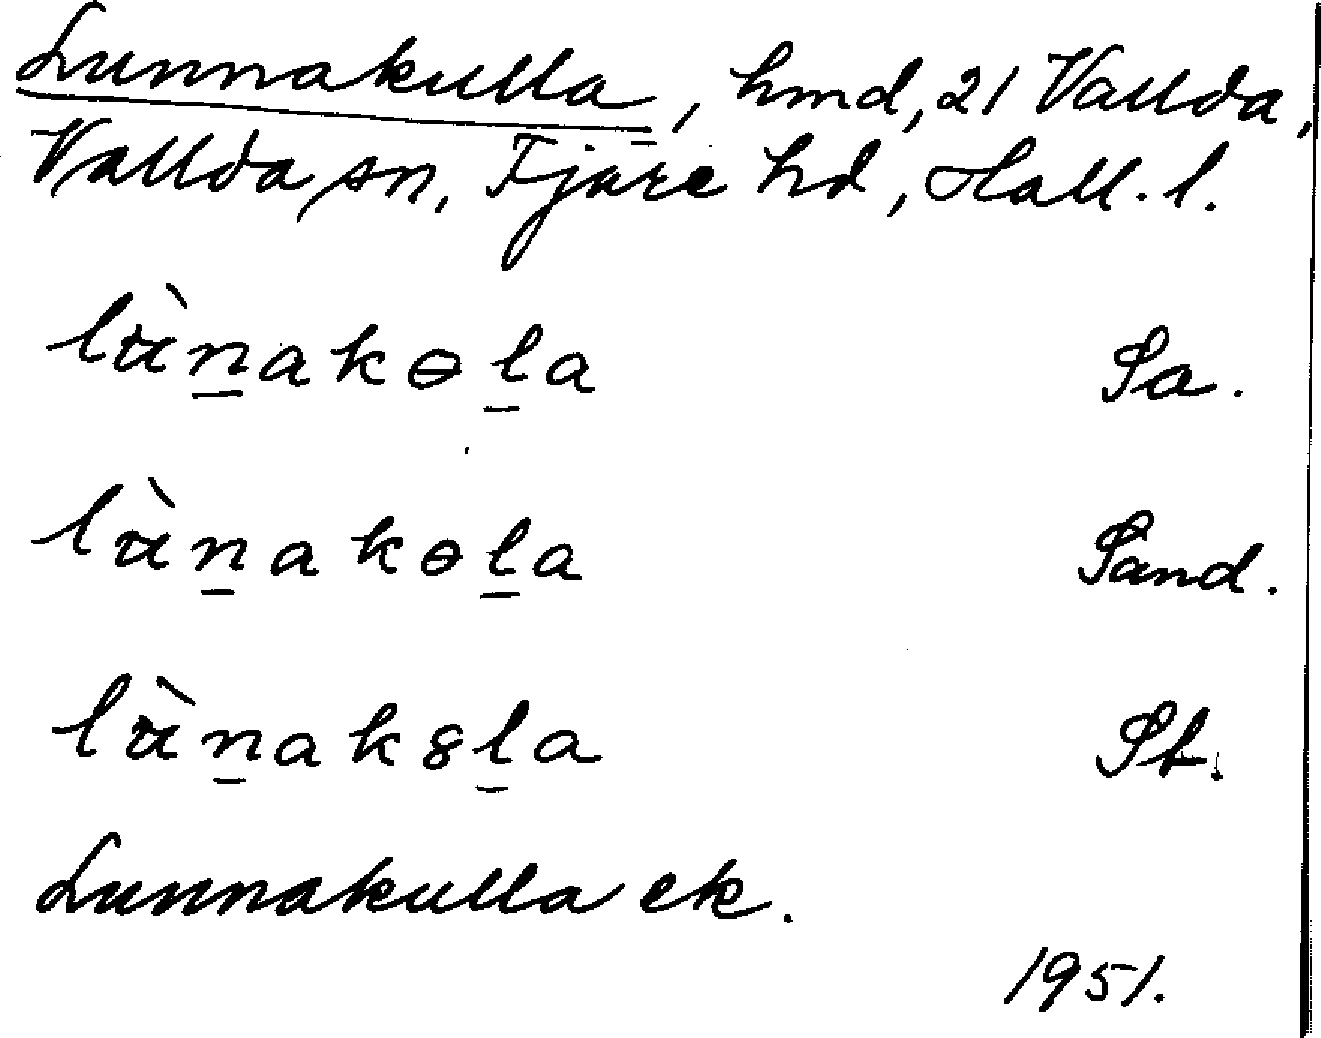 Lunnakulla, hmd, 21 Vallda,
Vallda sn, Fjäre hd, Hall. l.
lùn̲akɵl̲a Sa.
lùn̲akɵl̲a Sand.
lùn̲ak8l̲a St.
Lunnakulla ek.
1951.